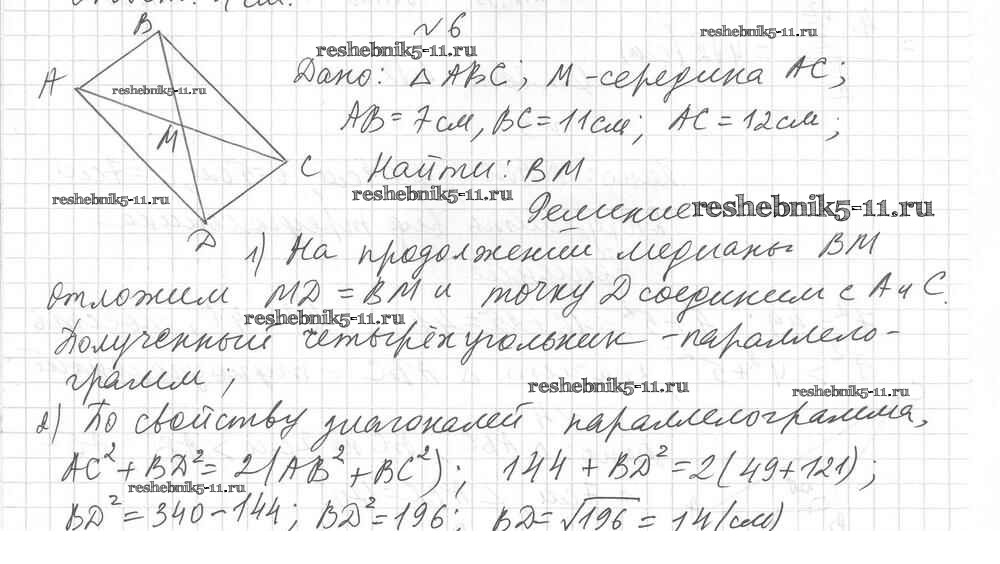 №6
B
reshebnik5-11.ru
reshebnik5-11.ru
Дано: △ ABC; M - середина AC;
A
reshebnik5-11.ru
AB = 7см, BC = 11см; AC = 12см;
M
C
Найти: BM
reshebnik5-11.ru
reshebnik5-11.ru
Решение reshebnik5-11.ru
D
1) На продолжении медианы BM
отложим MD = BM и точку D соединим с A и C.
reshebnik5-11.ru
Полученный четырёхугольник - параллело-
грамм;
reshebnik5-11.ru
reshebnik5-11.ru
2) По свойству диагоналей параллелограмма,
AC² + BD² = 2(AB² + BC²); 144 + BD² = 2(49+121);
reshebnik5-11.ru
BD² = 340 - 144; BD² = 196; BD = √196 = 14(см)